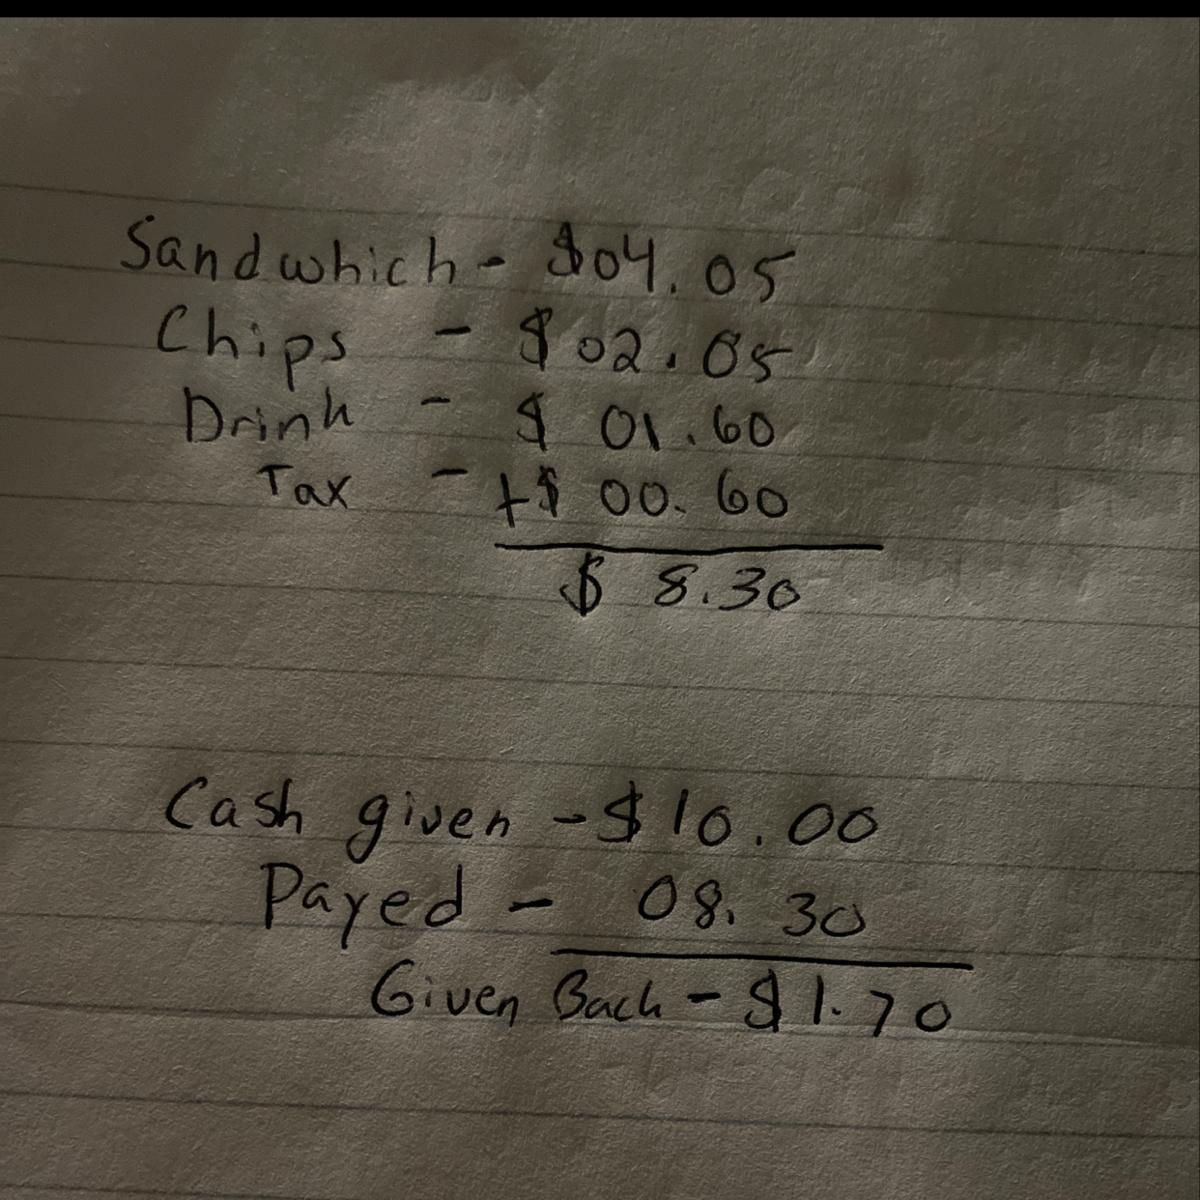 Sandwhich - $04.05
Chips - $02.05
Drink - $ 01.60
Tax - +$ 00.60
$ 8.30
Cash given - $10.00
Payed - 08.30
Given Back - $1.70